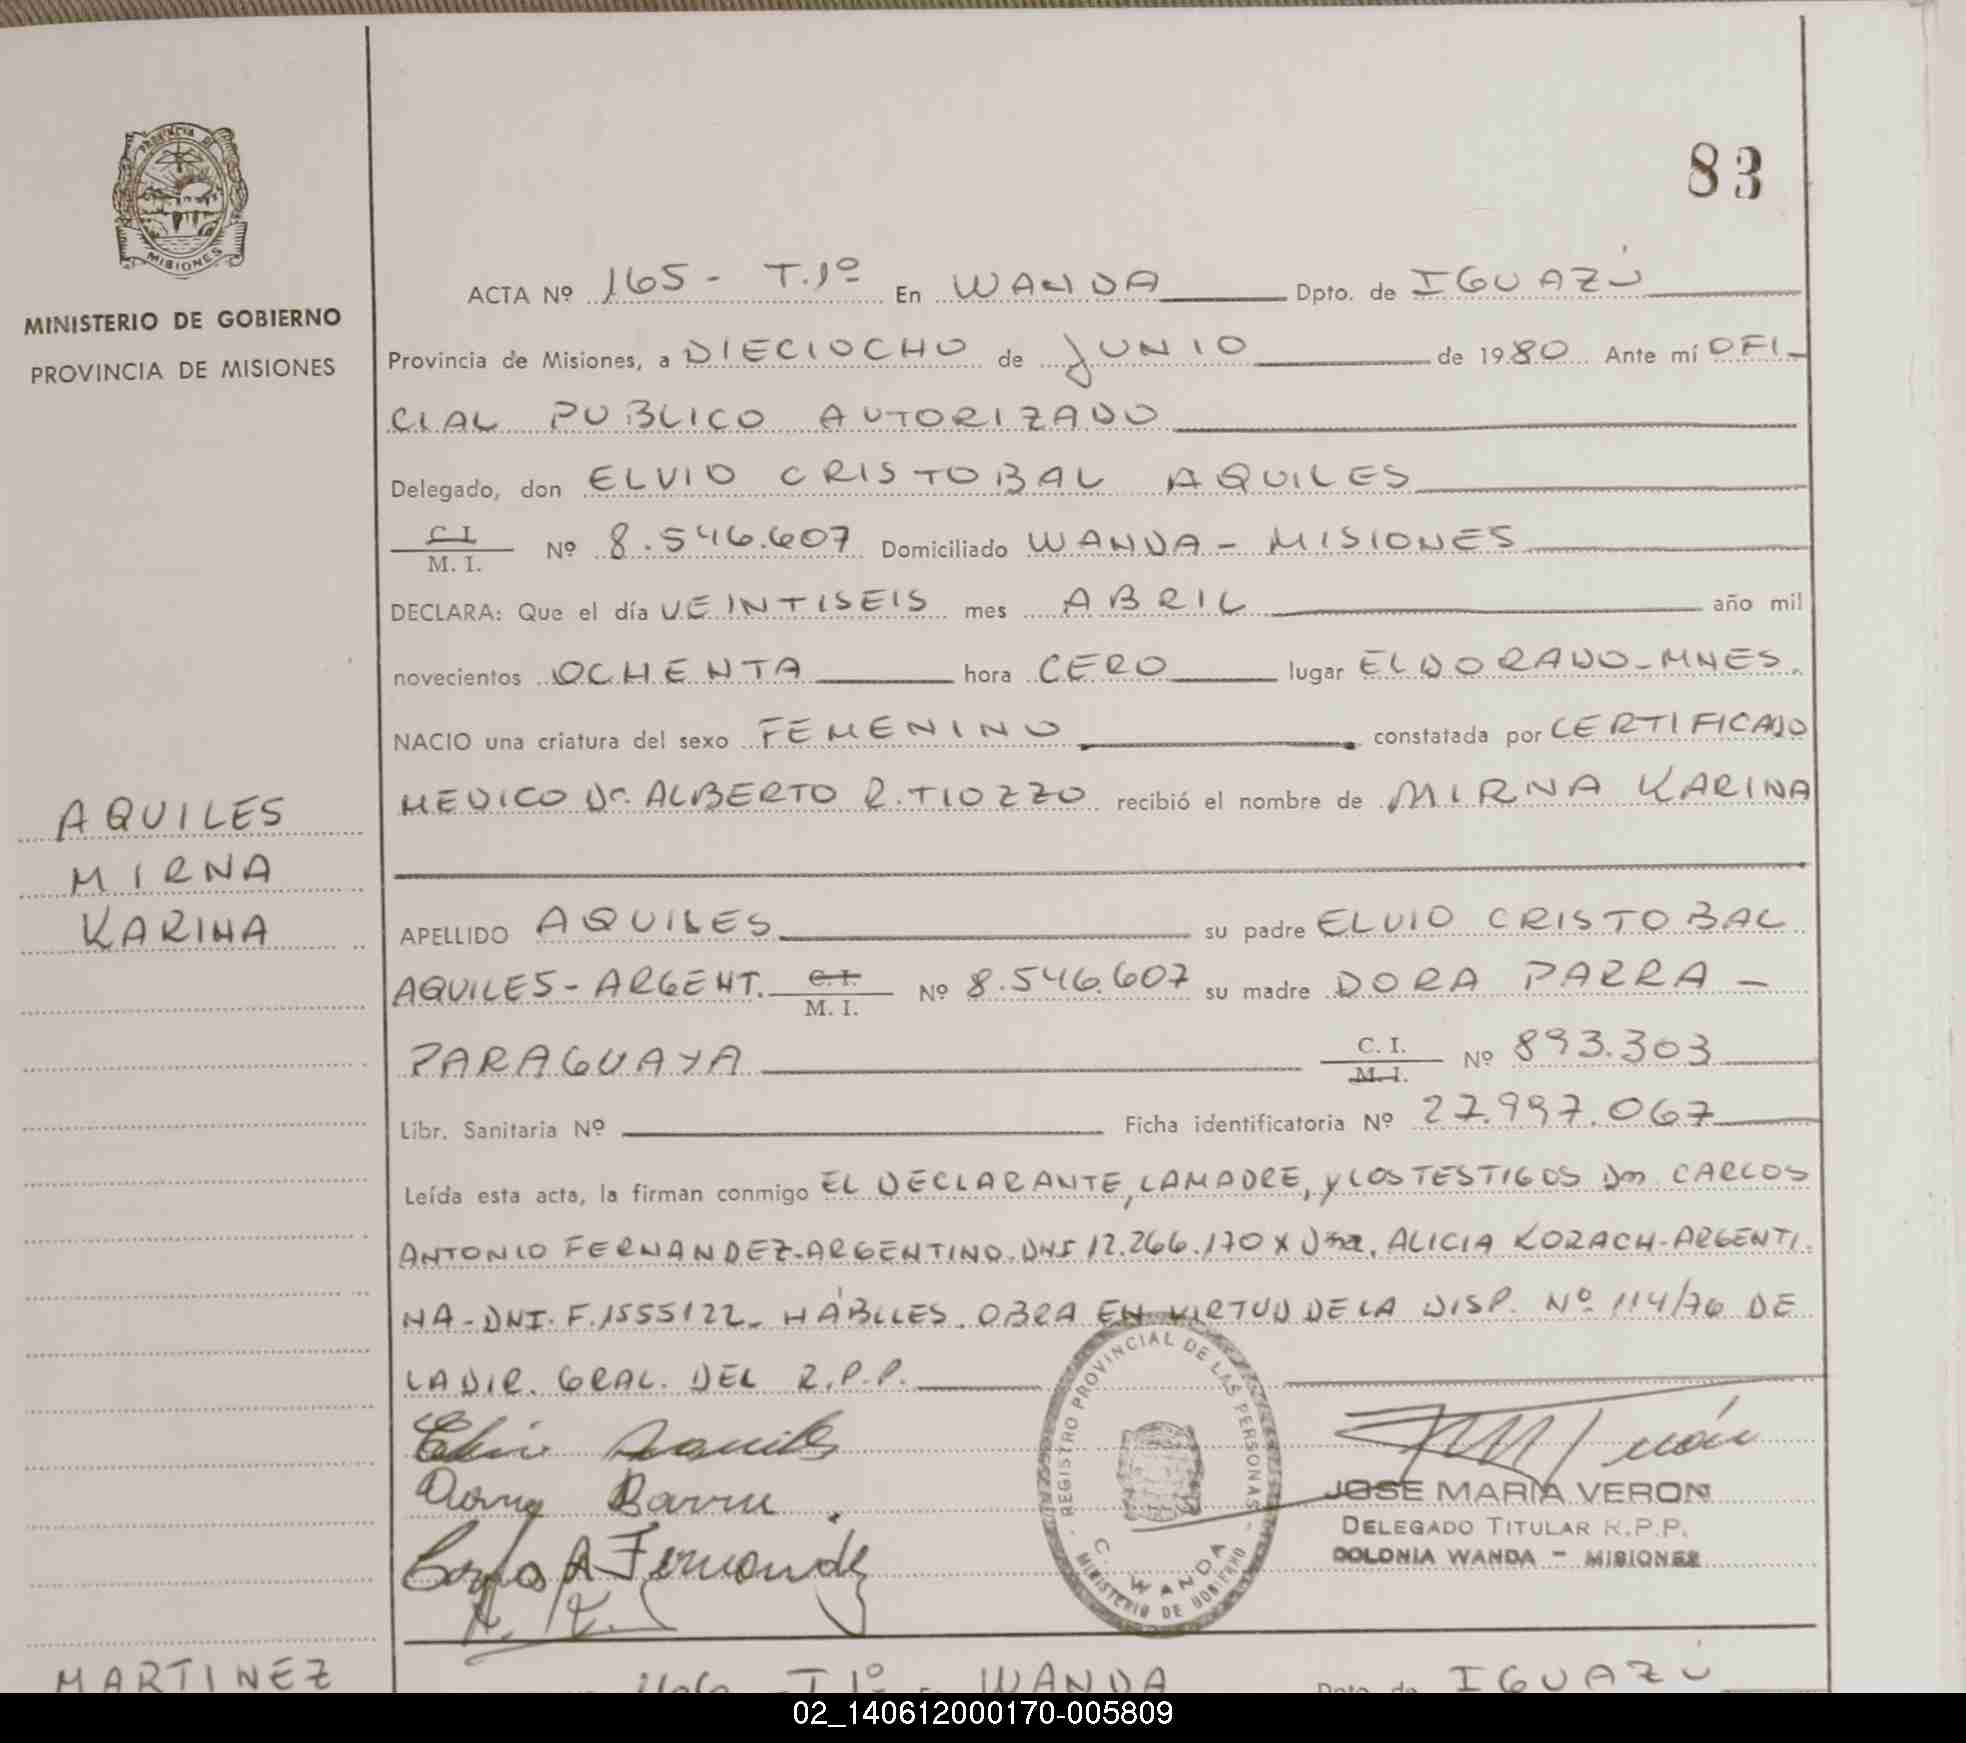 PROVINCIA DE
MISIONES
MINISTERIO DE GOBIERNO
PROVINCIA DE MISIONES
83
ACTA Nº 165 - T.1º En WANDA Dpto. de IGUAZÚ
Provincia de Misiones, a DIECIOCHO de JUNIO de 1980 Ante mí OFI-
CIAL PUBLICO AUTORIZADO
Delegado, don ELVIO CRISTOBAL AQUILES
C.I. M. I. Nº 8.546.607 Domiciliado WANDA - MISIONES
DECLARA: Que el día VEINTISEIS mes ABRIL año mil
novecientos OCHENTA hora CERO lugar ELDORADO-MNES.
NACIO una criatura del sexo FEMENINO constatada por CERTIFICADO
MEDICO Dr. ALBERTO R. TIOZZO recibió el nombre de MIRNA KARINA
AQUILES
MIRNA
KARINA
APELLIDO AQUILES su padre ELVIO CRISTOBAL
AQUILES - ARGENT. C.I. M. I. Nº 8.546.607 su madre DORA PARRA -
PARAGUAYA C. I. M. I. Nº 893.303
Libr. Sanitaria Nº Ficha identificatoria Nº 27.997.067
Leída esta acta, la firman conmigo EL DECLARANTE, LA MADRE, y LOS TESTIGOS Dn CARLOS
ANTONIO FERNANDEZ-ARGENTINO-DNI 12.266.170 x Dña. ALICIA KOZACH-ARGENTI-
NA-DNI. F.1555122- HÁBILES. OBRA EN VIRTUD DE LA DISP. Nº 114/76 DE
LA DIR. GRAL. DEL R.P.P.
REGISTRO PROVINCIAL DE LAS PERSONAS
C. WANDA
MINISTERIO DE GOBIERNO
Elvio Aquiles
Barru
Carlos A Fernandez
JOSE MARIA VERON
DELEGADO TITULAR R.P.P.
COLONIA WANDA - MISIONES
MARTINEZ
166 - T1º En WANDA Dpto. de IGUAZÚ
02_140612000170-005809